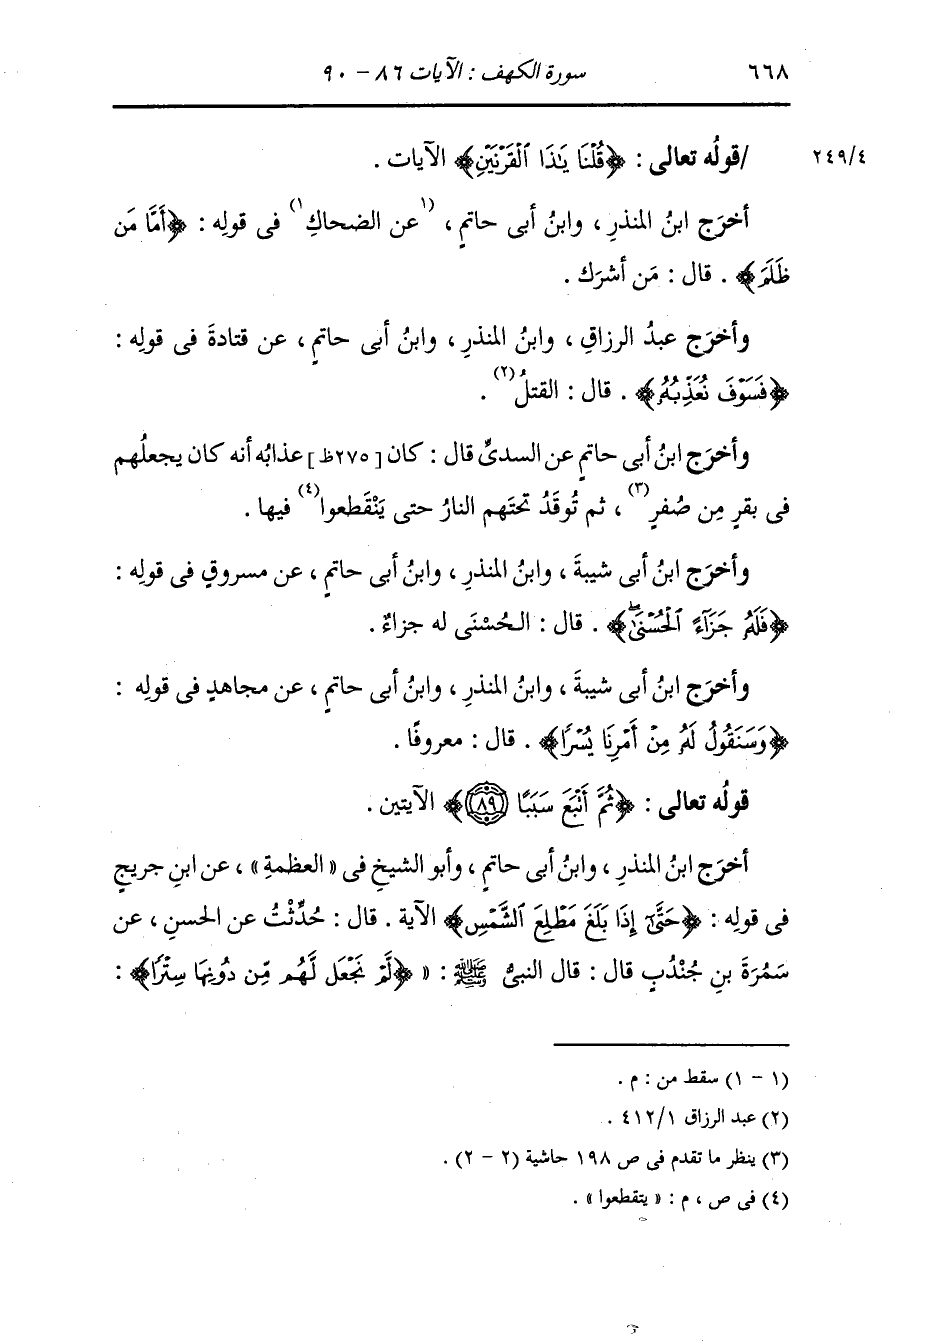 ٦٦٨ سورة الكهف : الآيات ٨٦ - ٩٠
٢٤٩/٤ /قولُه تعالى : ﴿قُلْنَا يَٰذَا ٱلْقَرْنَيْنِ﴾ الآيات .
أخرَج ابنُ المنذرِ ، وابنُ أبى حاتمٍ ، (١عن الضحاكِ١) فى قولِه : ﴿أَمَّا مَن
ظَلَمَ﴾ . قال : مَن أشرَك .
وأخرَج عبدُ الرزاقِ ، وابنُ المنذرِ ، وابنُ أبى حاتمٍ ، عن قتادةَ فى قولِه :
﴿فَسَوْفَ نُعَذِّبُهُۥ﴾ . قال : القتلُ(٢) .
وأخرَج ابنُ أبى حاتمٍ عن السدىِّ قال : كان [٢٧٥ظ] عذابُه أنه كان يجعلُهم
فى بقرٍ مِن صُفرٍ(٣) ، ثم تُوقَدُ تحتَهم النارُ حتى يَنْقَطعوا(٤) فيها .
وأخرَج ابنُ أبى شيبةَ ، وابنُ المنذرِ ، وابنُ أبى حاتمٍ ، عن مسروقٍ فى قولِه :
﴿فَلَهُۥ جَزَآءً ٱلْحُسْنَىٰۖ﴾ . قال : الحُسْنَى له جزاءٌ .
وأخرَج ابنُ أبى شيبةَ ، وابنُ المنذرِ ، وابنُ أبى حاتمٍ ، عن مجاهدٍ فى قولِه :
﴿وَسَنَقُولُ لَهُۥ مِنْ أَمْرِنَا يُسْرًا﴾ . قال : معروفًا .
قولُه تعالى : ﴿ثُمَّ أَتْبَعَ سَبَبًا ٨٩﴾ الآيتين .
أخرَج ابنُ المنذرِ ، وابنُ أبى حاتمٍ ، وأبو الشيخِ فى « العظمةِ » ، عن ابنِ جريجٍ
فى قولِه : ﴿حَتَّىٰٓ إِذَا بَلَغَ مَطْلِعَ ٱلشَّمْسِ﴾ الآية . قال : حُدِّثْتُ عن الحسنِ ، عن
سَمُرَةَ بنِ جُنْدُبٍ قال : قال النبىُّ ﷺ : « ﴿لَّمْ نَجْعَل لَّهُم مِّن دُونِهَا سِتْرًا﴾ :
(١ - ١) سقط من : م .
(٢) عبد الرزاق ٤١٢/١ .
(٣) ينظر ما تقدم فى ص ١٩٨ حاشية (٢ - ٢) .
(٤) فى ص ، م : « يتقطعوا » .